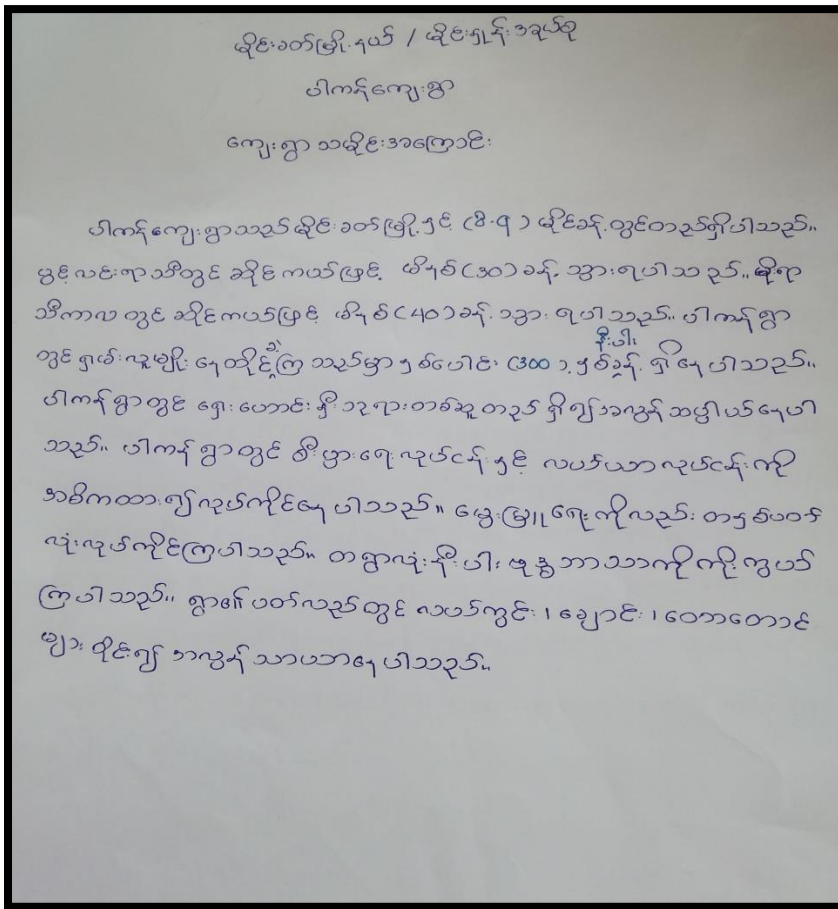 မိုင်းခတ်မြို့နယ် / မိုင်းရှုန်းအုပ်စု
ပါကန်ကျေးရွာ
ကျေးရွာ သမိုင်းအကြောင်း
ပါကန်ကျေးရွာသည် မိုင်းခတ်မြို့နှင့် (8.9) မိုင်ခန့်တွင်တည်ရှိပါသည်။
ပွင့်လင်းရာသီတွင် ဆိုင်ကယ်ဖြင့် မိနစ် (30) ခန့် သွားရပါသည်။ မိုးရာ
သီကာလတွင် ဆိုင်ကယ်ဖြင့် မိနစ် (40) ခန့် သွားရပါသည်။ ပါကန်ရွာ
တွင် ရှမ်းလူမျိုး နေထိုင်ခဲ့ကြသည်မှာ နှစ်ပေါင်း (300) နီးပါး နှစ်ခန့် ရှိနေပါသည်။
ပါကန်ရွာတွင် ရှေးဟောင်း ဘုရားတစ်ဆူတည် ရှိ၍ အလွန် သပ္ပါယ်နေပါ
သည်။ ပါကန်ရွာတွင် စီးပွားရေးလုပ်ငန်းနှင့် လယ်ယာလုပ်ငန်းကို
အဓိကထား၍လုပ်ကိုင်နေပါသည်။ မွေးမြူရေးကိုလည်း တနှစ်ပတ်
လုံးလုပ်ကိုင်ကြပါသည်။ တရွာလုံးနီးပါး ဗုဒ္ဓဘာသာကိုကိုးကွယ်
ကြပါသည်။ ရွာ၏ပတ်လည်တွင် လယ်ကွင်း၊ ချောင်း၊ တောတောင်
များ ဝိုင်း၍ အလွန် သာယာနေပါသည်။